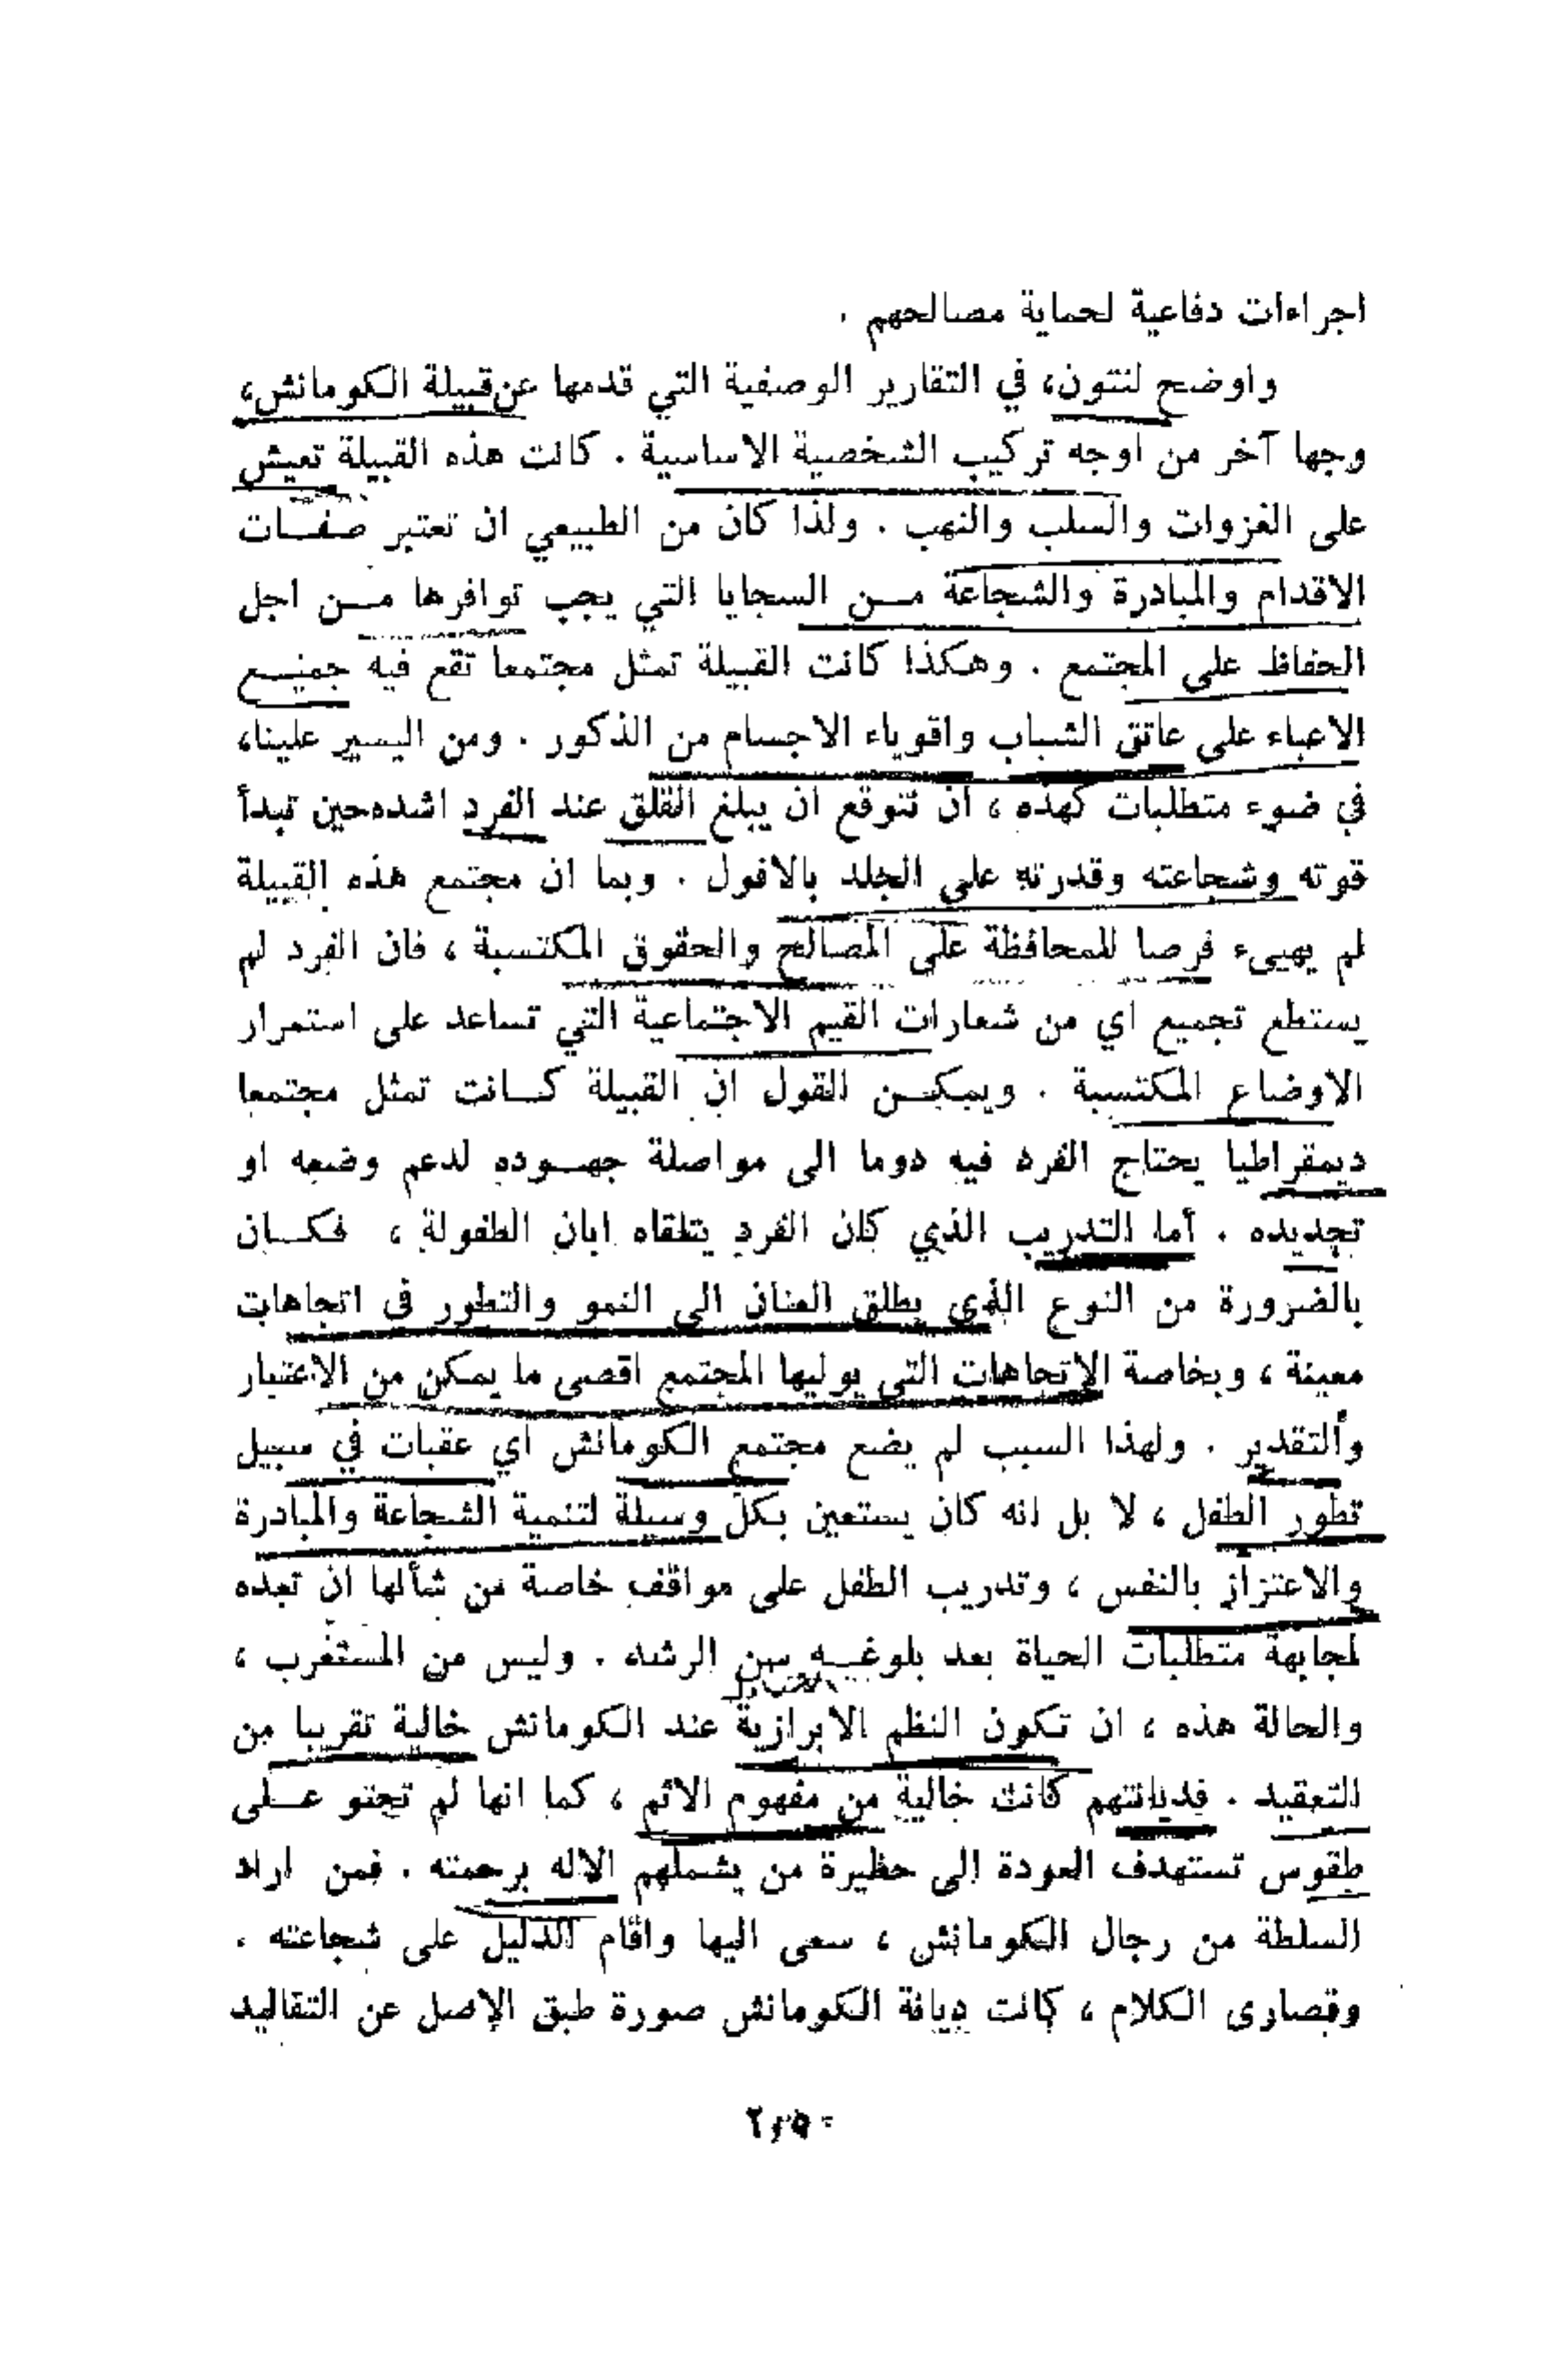 اجراءات دفاعية لحماية مصالحهم .
واوضح لنتون، في التقارير الوصفية التي قدمها عن قبيلة الكومانش،
وجها آخر من اوجه تركيب الشخصية الاساسية . كانت هذه القبيلة تعيش
على الغزوات والسلب والنهب . ولذا كان من الطبيعي ان تعتبر صفــات
الاقدام والمبادرة والشجاعة مــن السجايا التي يجب توافرها مــن اجل
الحفاظ على المجتمع . وهكذا كانت القبيلة تمثل مجتمعا تقع فيه جميــع
الاعباء على عاتق الشباب واقوياء الاجسام من الذكور . ومن اليسير علينا،
في ضوء متطلبات كهذه ، ان نتوقع ان يبلغ القلق عند الفرد اشده حين تبدأ
قوته وشجاعته وقدرته على الجلد بالافول . وبما ان مجتمع هذه القبيلة
لم يهيىء فرصا للمحافظة على المصالح والحقوق المكتسبة ، فان الفرد لم
يستطع تجميع اي من شعارات القيم الاجتماعية التي تساعد على استمرار
الاوضاع المكتسبة . ويمكــن القول ان القبيلة كــانت تمثل مجتمعا
ديمقراطيا يحتاج الفرد فيه دوما الى مواصلة جهــوده لدعم وضعه او
تجديده . أما التدريب الذي كان الفرد يتلقاه ابان الطفولة ، فكــان
بالضرورة من النوع الذي يطلق العنان الى النمو والتطور في اتجاهات
معينة ، وبخاصة الاتجاهات التي يوليها المجتمع اقصى ما يمكن من الاعتبار
والتقدير . ولهذا السبب لم يضع مجتمع الكومانش اي عقبات في سبيل
تطور الطفل ، لا بل انه كان يستعين بكل وسيلة لتنمية الشجاعة والمبادرة
والاعتزاز بالنفس ، وتدريب الطفل على مواقف خاصة من شأنها ان تعده
لمجابهة متطلبات الحياة بعد بلوغــه سن الرشد . وليس من المستغرب ،
والحالة هذه ، ان تكون النظم الابرازية عند الكومانش خالية تقريبا من
التعقيد . فديانتهم كانت خالية من مفهوم الاثم ، كما انها لم تحتو عــلى
طقوس تستهدف العودة الى حظيرة من يشملهم الاله برحمته . فمن اراد
السلطة من رجال الكومانش ، سعى اليها واقام الدليل على شجاعته .
وقصارى الكلام ، كانت ديانة الكومانش صورة طبق الاصل عن التقاليد